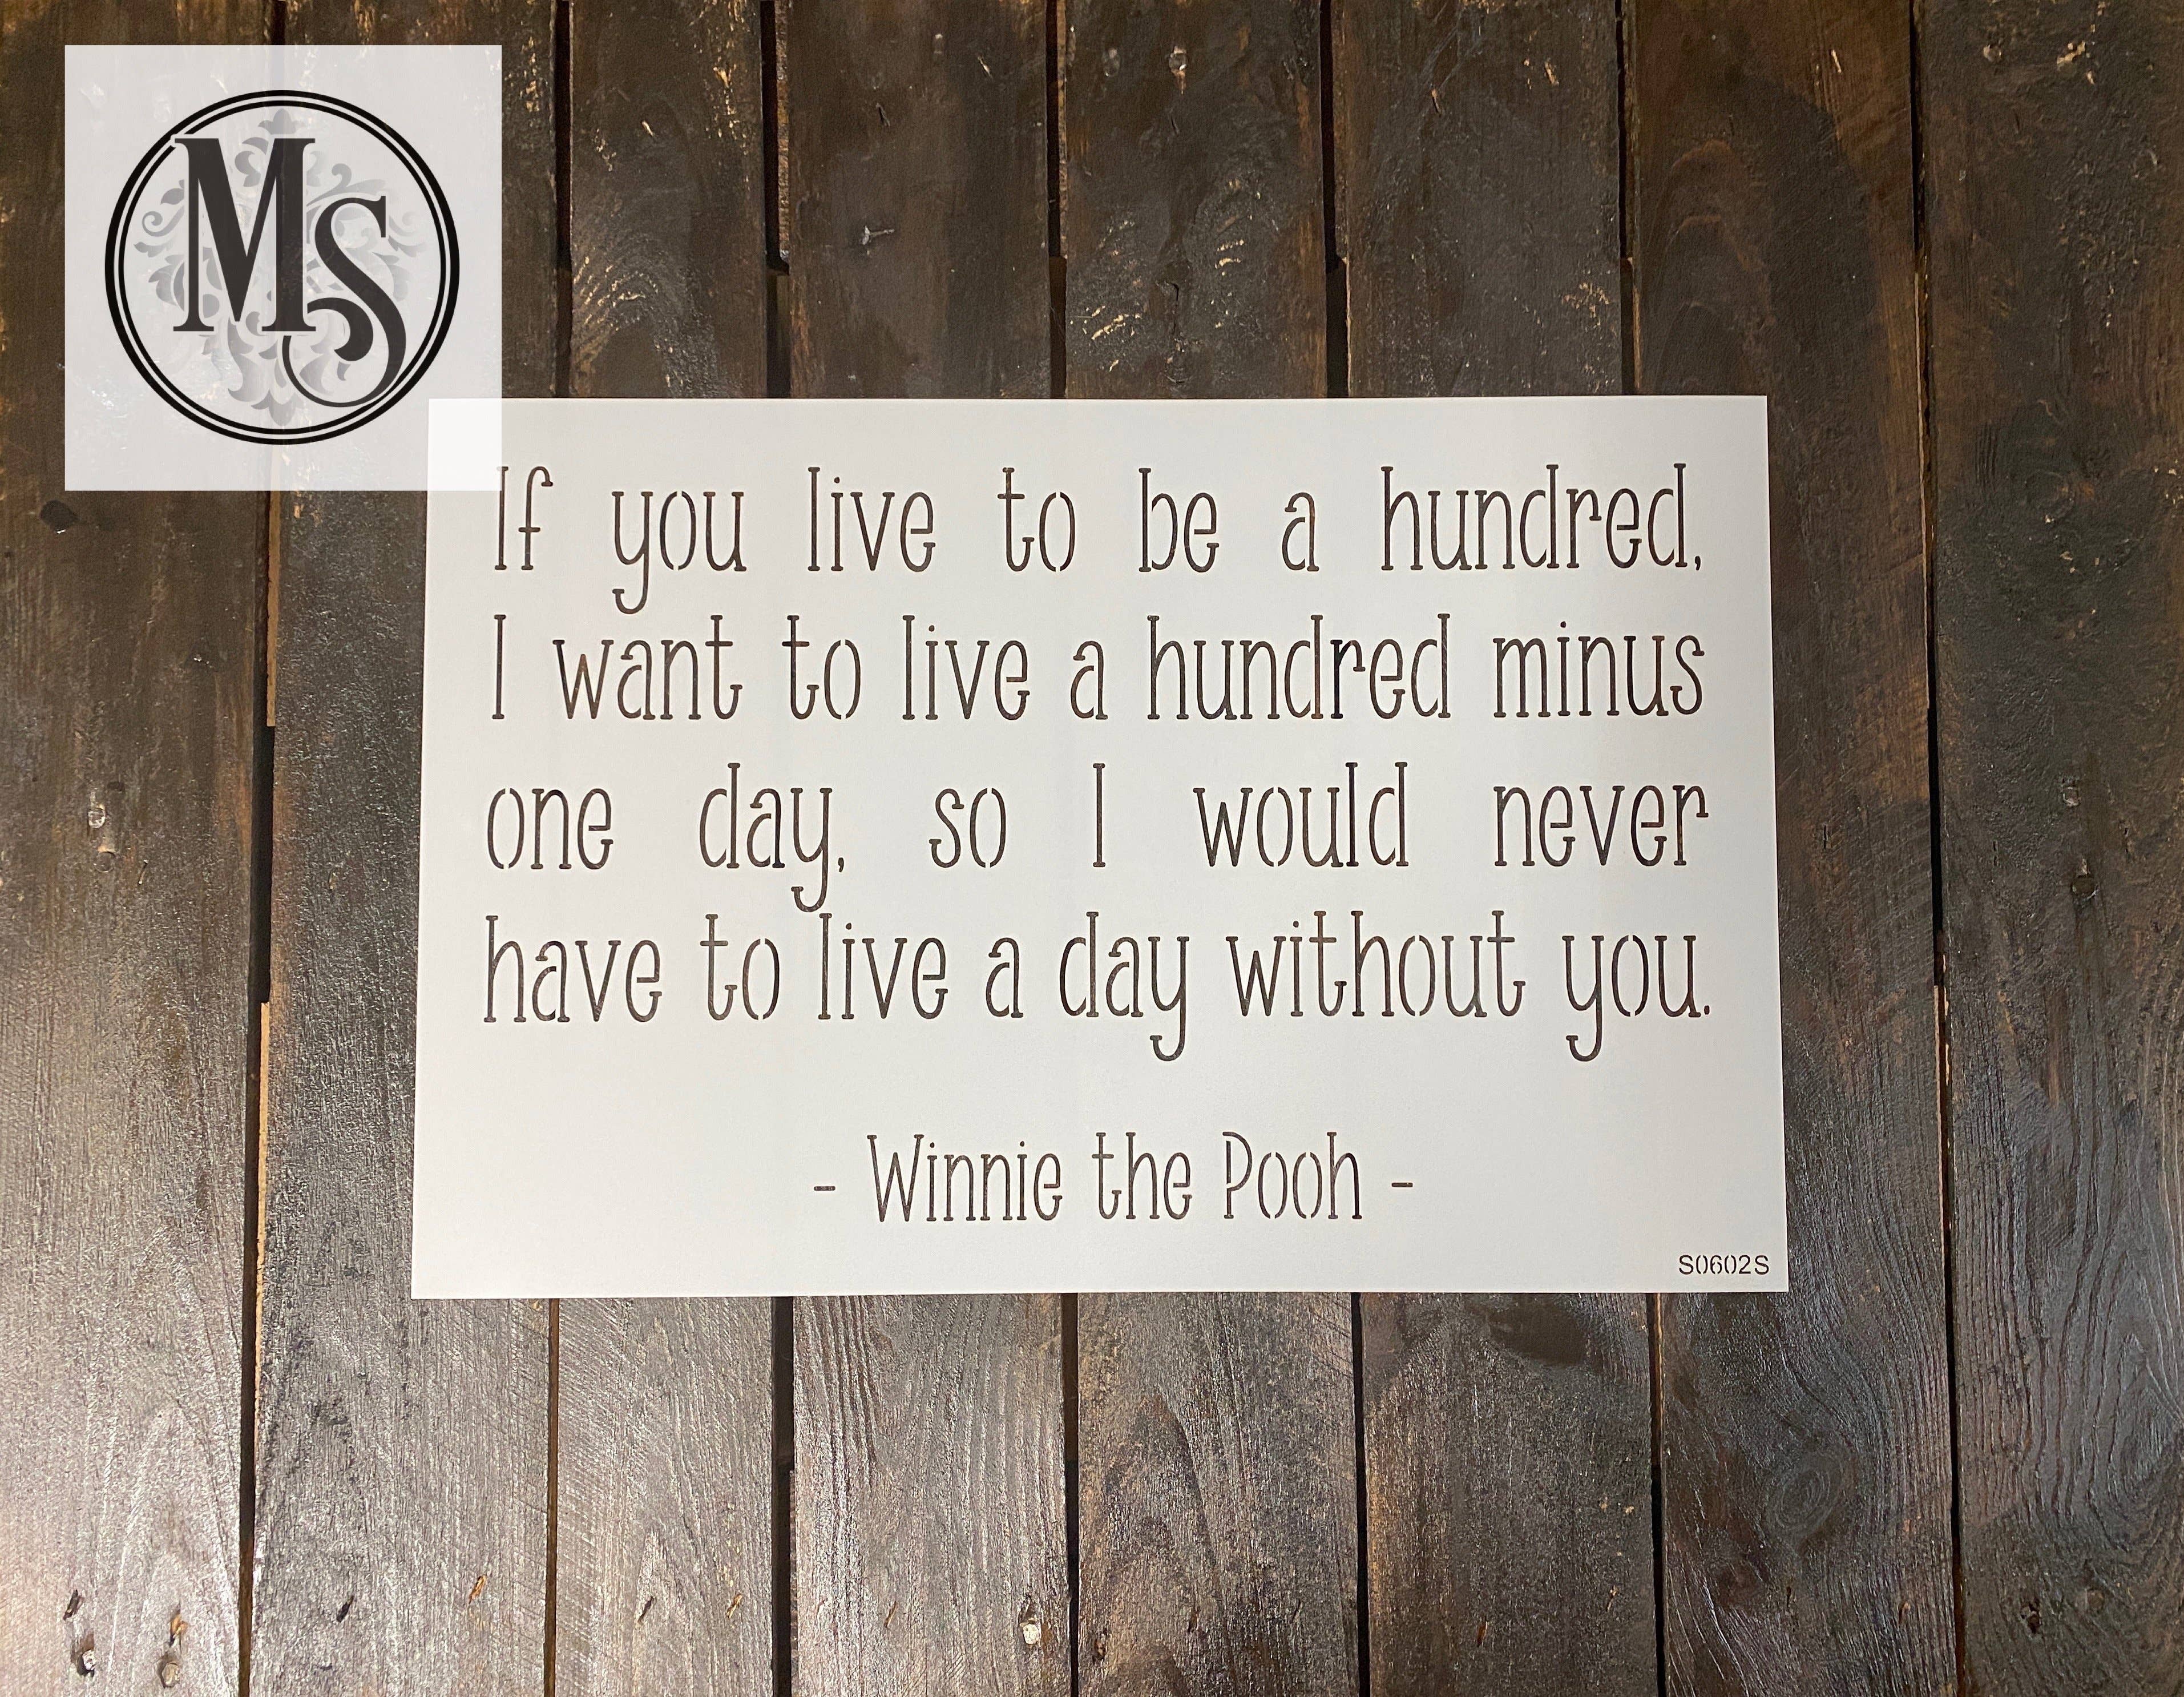 MS
If you live to be a hundred,
I want to live a hundred minus
one day, so I would never
have to live a day without you.
- Winnie the Pooh -
S0602S